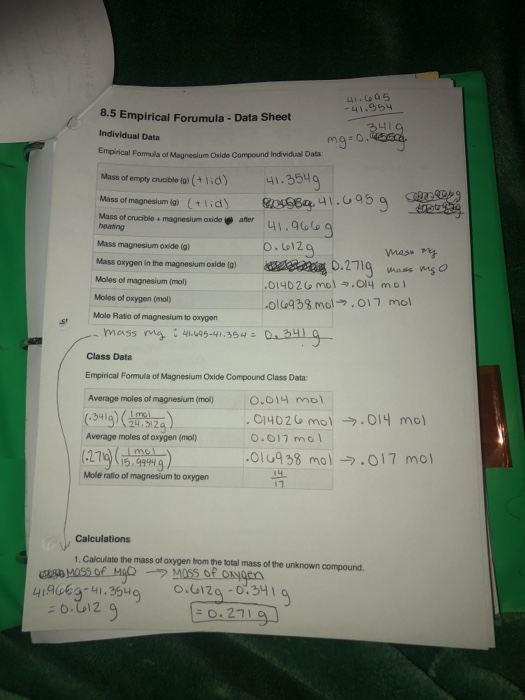 41.695
-41.354
.341g
mg=0.
8.5 Empirical Forumula - Data Sheet
Individual Data
Empirical Formula of Magnesium Oxide Compound Individual Data:
Mass of empty crucible (g) (+lid) 41.354g
Mass of magnesium (g) (+lid) 41.695g
Mass of crucible + magnesium oxide after
heating 41.966g
Mass magnesium oxide (g) 0.612g
mass mg
Mass oxygen in the magnesium oxide (g) 0.271g mass mgO
Moles of magnesium (mol) .014026 mol →.014 mol
Moles of oxygen (mol) .016938 mol→.017 mol
Mole Ratio of magnesium to oxygen
mass mg : 41.695-41.354 = 0.341g
Class Data
Empirical Formula of Magnesium Oxide Compound Class Data:
Average moles of magnesium (mol) 0.014 mol
(.341g)(1 mol/24.312g) .014026 mol →.014 mol
Average moles of oxygen (mol) 0.017 mol
(.271g)(1 mol/15.9994g) .016938 mol →.017 mol
Mole ratio of magnesium to oxygen 14/17
Calculations
1. Calculate the mass of oxygen from the total mass of the unknown compound.
Mass of MgO → Mass of oxygen
41.966g-41.354g 0.612g-0.341g
=0.612 g =0.271g